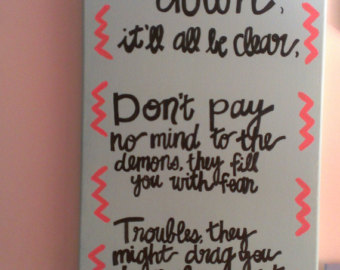 down,
it'll all be clear,
Don't pay
no mind to the
demons, they fill
you with fear
Troubles, they
might drag you